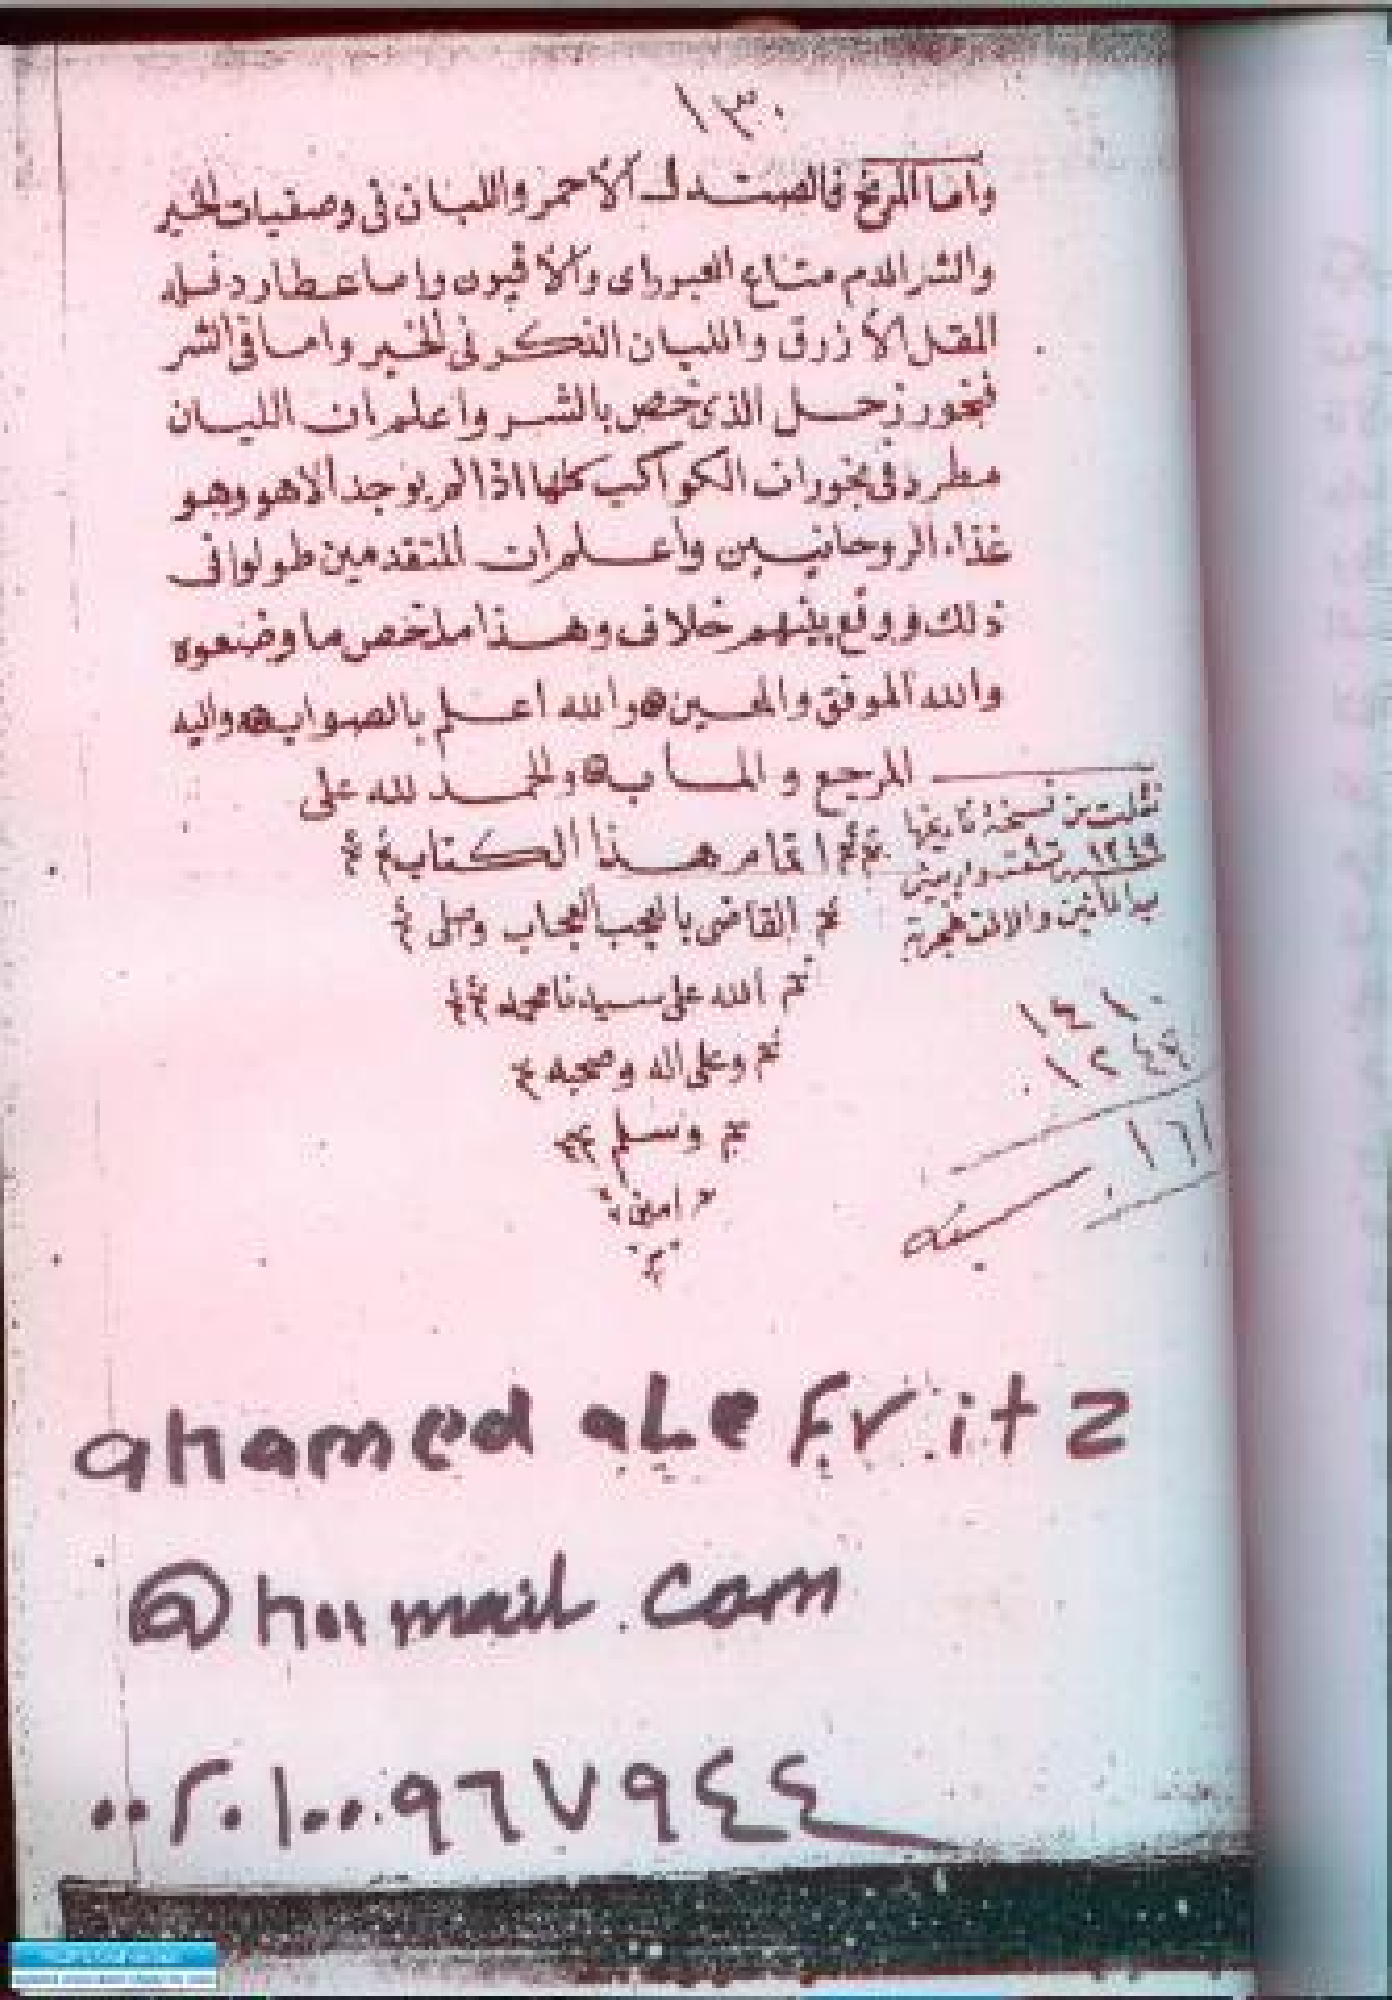 ١٣٠
واما المريخ فالصندل الأحمر واللبان فى وصفيات الخير
والشر الدم متاع والأفيون واما عطارد فله
المقل الأزرق واللبان الذكر فى الخير واما فى الشر
فبخور زحل الذى خص بالشر واعلم ان اللبان
مطرد فى بخورات الكواكب كلها اذا لم يوجد الا هو وهو
غذاء الروحانيين واعلم ان المتقدمين طولوا فى
ذلك ووقع بينهم خلاف وهذا ملخص ما وضعوه
والله الموفق والمعين والله اعلم بالصواب واليه
المرجع والمأب والحمد لله على
اتمام هذا الكتاب
القاضى بالعجب العجاب وصلى
الله على سيدنا محمد
وعلى اله وصحبه
وسلم
امين
م
نقلت من نسخة تاريخها
١٢٤٩ تسعة واربعين
بعد المأتين والالف هجرية
١٤١٠
١٢٤٩
١٦١
سنة
ahamed abe fr it z
@hotmail.com
٠٠٢٠١٠٠٩٦٧٩٤٤